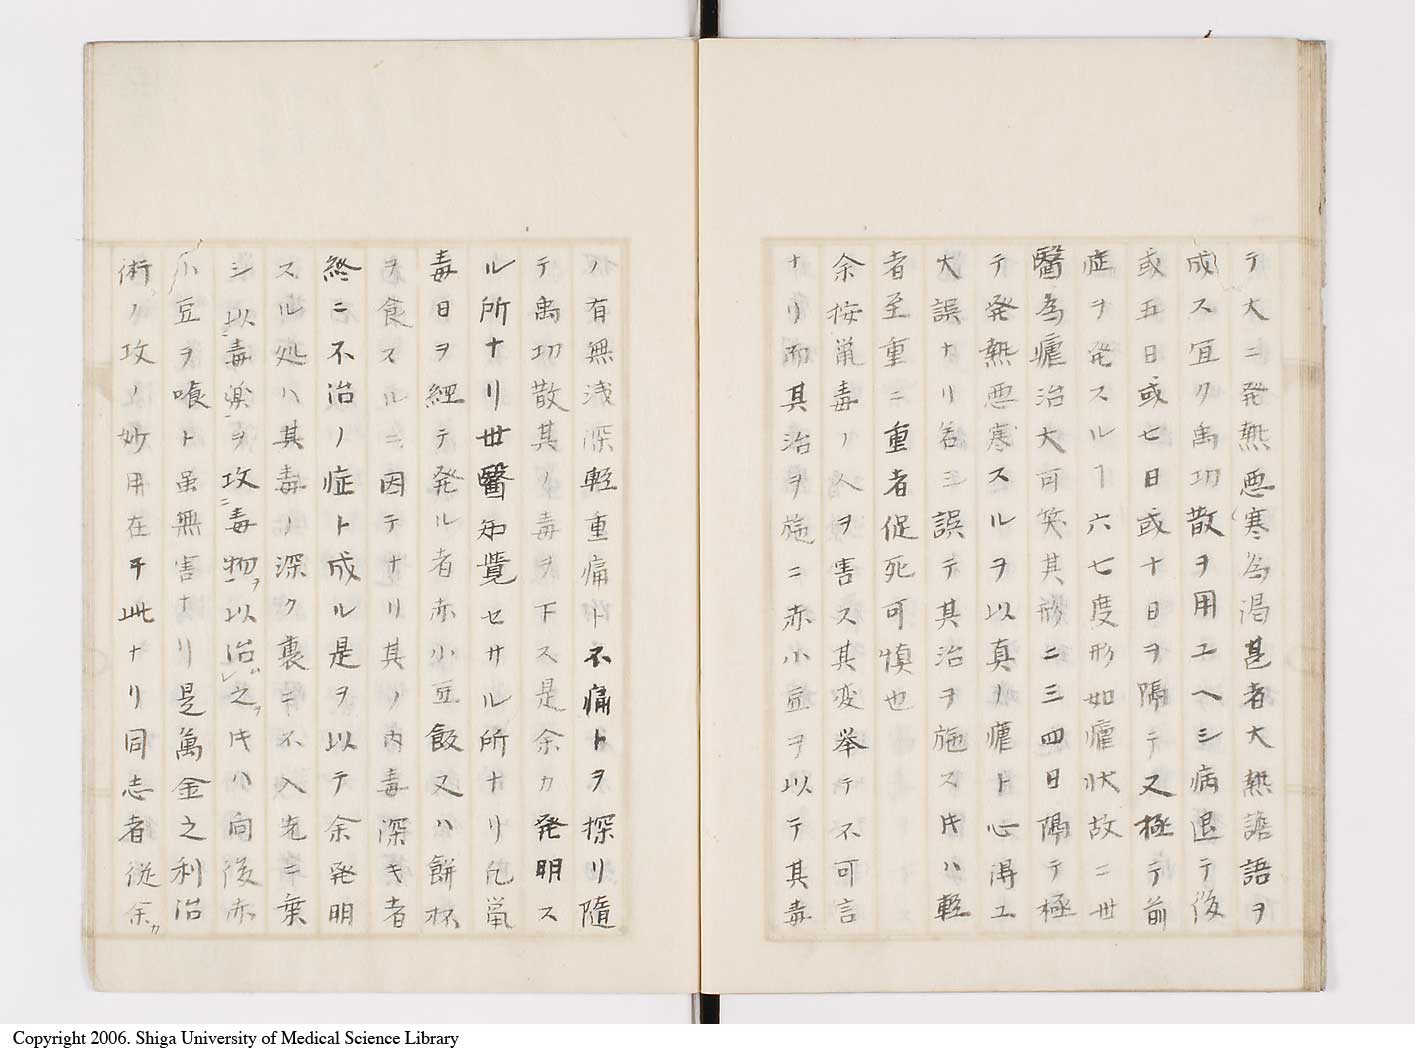 テ大ニ発熱悪寒為渇甚者大熱譫語ヲ
成ス宜ク禹功散ヲ用ユヘシ病退テ後
或五日或七日或十日ヲ隔テ又極テ前
症ヲ発スルヿ六七度形如瘧状故ニ世
醫為瘧治大可笑其形ニ三四日隔テ極
テ発熱悪寒スルヲ以真ノ瘧ト心得ユ
大誤ナリ若誤テ其治ヲ施ス𪜈ハ軽
者至重ニ重者促死可慎也
余按鼠毒ノ人ヲ害ス其変挙テ不可言
ナリ而其治ヲ施ニ赤小豆ヲ以テ其毒
ノ有無浅深軽重痛ト不痛トヲ探リ随
テ禹功散其ノ毒ヲ下ス是余カ発明ス
ル所ナリ世醫知覚セサル所ナリ凡鼠
毒日ヲ経テ発ル者赤小豆飯又ハ餅杯
ヲ食スルニ因テナリ其ノ内毒深キ者
終ニ不治ノ症ト成ル是ヲ以テ余発明
スル処ハ其毒ノ深ク裏ニ不入先ニ棄
シ以毒薬ヲ攻毒物ヲ以治之𪜈ハ向後赤
小豆ヲ喰ト虽無害ナリ是萬金之利治
術ノ攻ノ妙用在乎此ナリ同志者従余
Copyright 2006. Shiga University of Medical Science Library